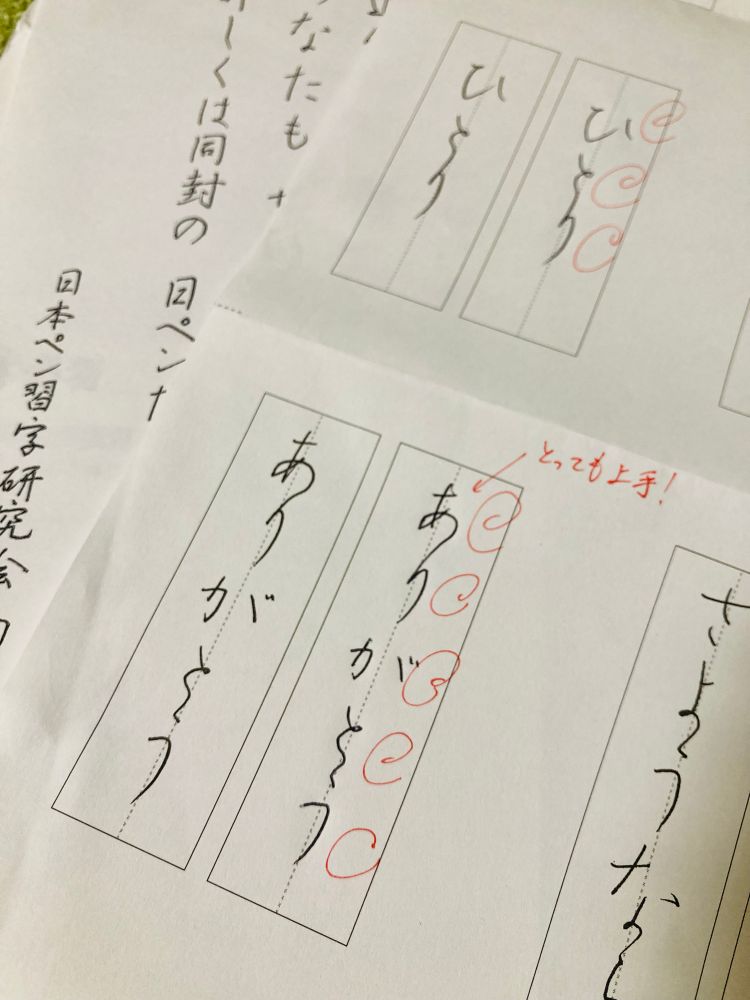 ひとり
ひとり
さようなら
とっても上手!
ありがとう
ありがとう
なたも
しくは同封の 日ペン
日本ペン習字研究会